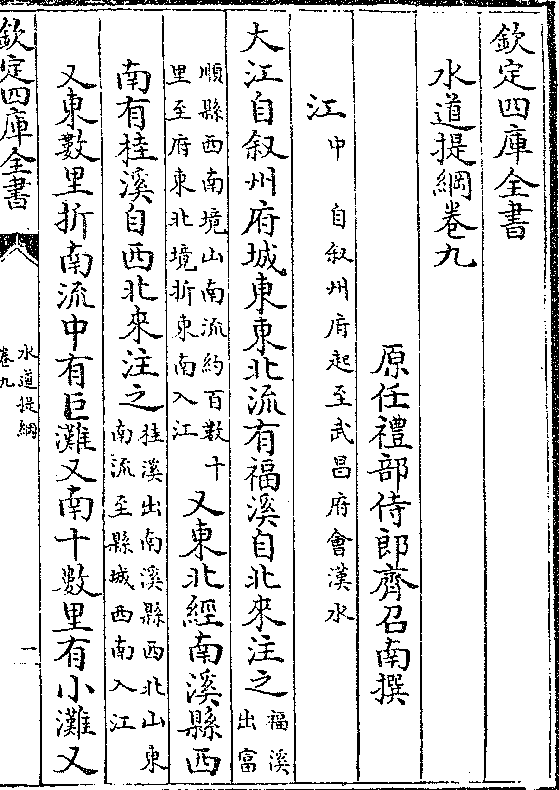 欽定四庫全書
水道提綱卷九
原任禮部侍郎齊召南撰
江中　自叙州府起至武昌府會漢水
大江自叙州府城東東北流有福溪自北來注之福溪出富
順縣西南境山南流約百數十里至府東北境折東南入江又東北經南溪縣西
南有桂溪自西北來注之桂溪出南溪縣西北山東南流至縣城西南入江
又東數里折南流中有巨灘又南十數里有小灘又
欽定四庫全書
水道提綱
卷九
一